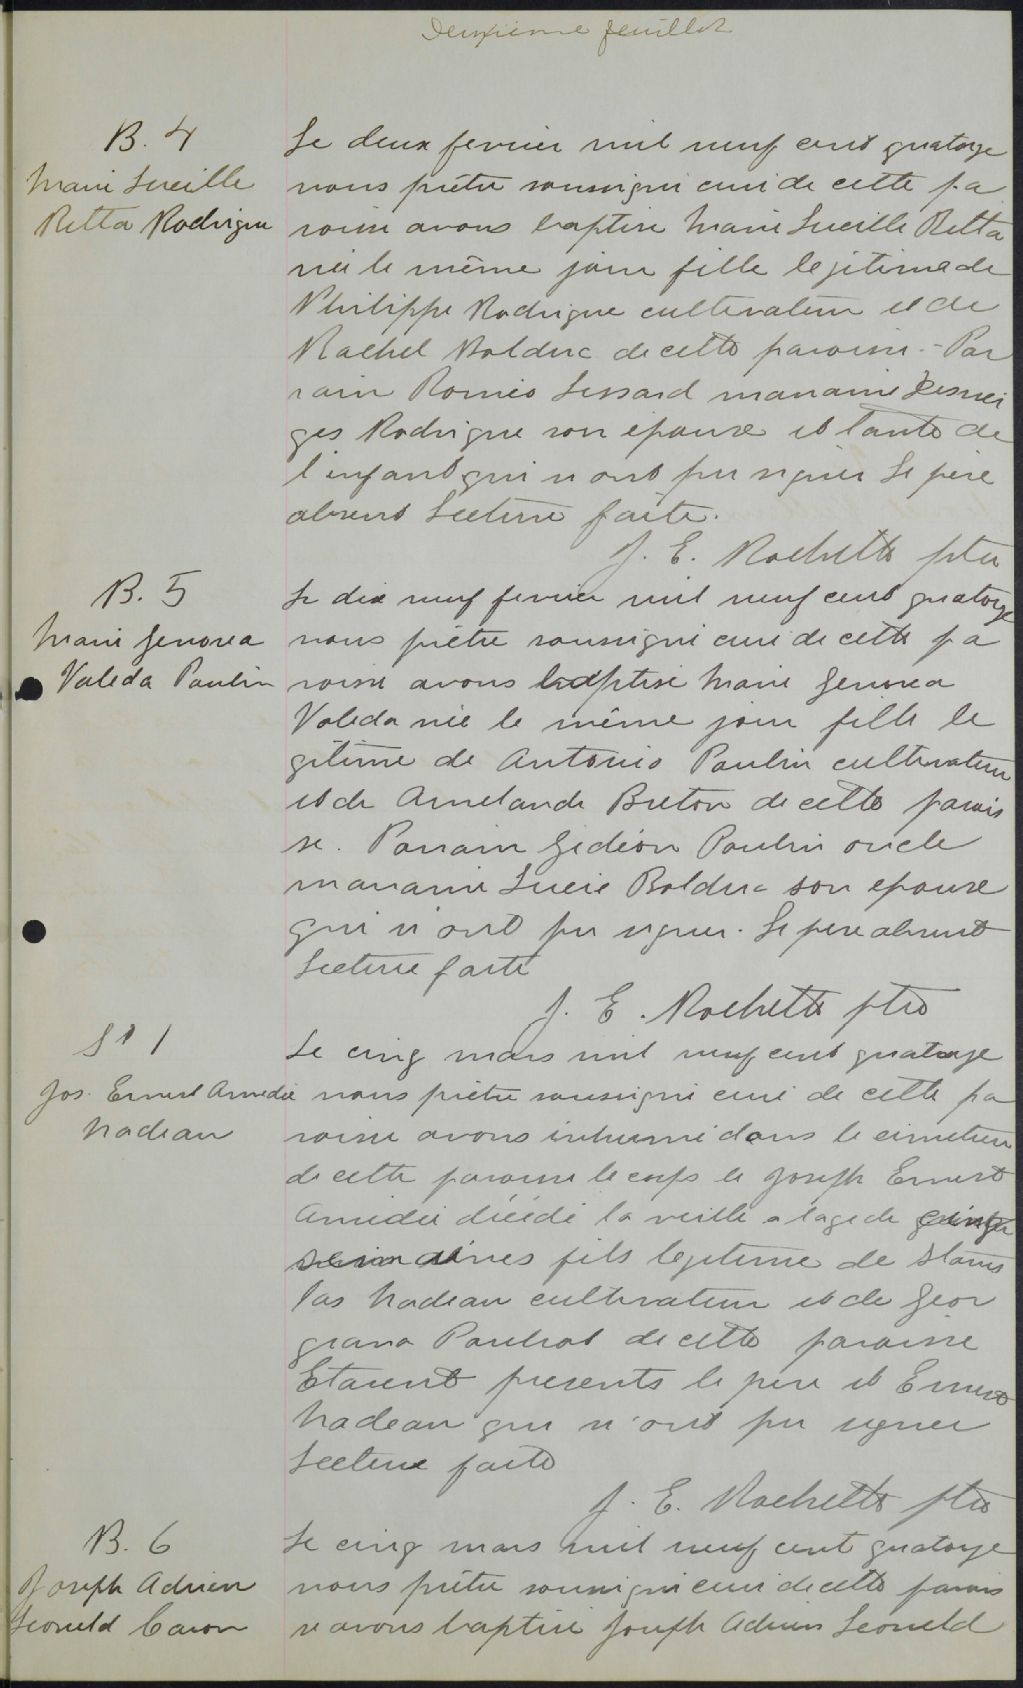 Deuxième feuillet
B. 4
Marie Lucille
Retta Rodrigue
Le deux fevrier mil neuf cent quatorze
nous prêtre soussigné curé de cette pa
roisse avons baptisé Marie Lucille Retta
née le même jour fille legitime de
Philippe Rodrigue cultivateur et de
Rachel Bolduc de cette paroisse. - Par
rain Roméo Lessard marraine Desnei
ges Rodrigue son épouse et tante de
l'enfant qui n'ont pu signer Le père
absent Lecture faite.
J. E. Rochette ptre
B. 5
Marie Genorea
Valeda Poulin
Le dix neuf fevrier mil neuf cent quatorze
nous prêtre soussigné curé de cette pa
roisse avons baptisé Marie Genorea
Valeda née le même jour fille le
gitime de Antonio Poulin cultivateur
et de Amelanda Breton de cette parois
se. Parrain Gédéon Poulin oncle
marraine Lucie Bolduc son epouse
qui n'ont pu signer. Le père absent
Lecture faite
J. E. Rochette ptre
S 1
Jos. Ernest Amedée
Nadeau
Le cinq mars mil neuf cent quatorze
nous prêtre soussigné curé de cette pa
roisse avons inhumé dans le cimetière
de cette paroisse le corps de Joseph Ernest
Amedée décédé la veille a lage de quinze
semaines fils legitime de Stanis
las Nadeau cultivateur et de Geor
giana Pouliot de cette paroisse
Etaient presents le père et Ernest
Nadeau qui n'ont pu signer
Lecture faite
J. E. Rochette ptre
B. 6
Joseph Adrien
Leoneld Caron
Le cinq mars mil neuf cent quatorze
nous prêtre soussigné curé de cette parois
se avons baptisé Joseph Adrien Leoneld